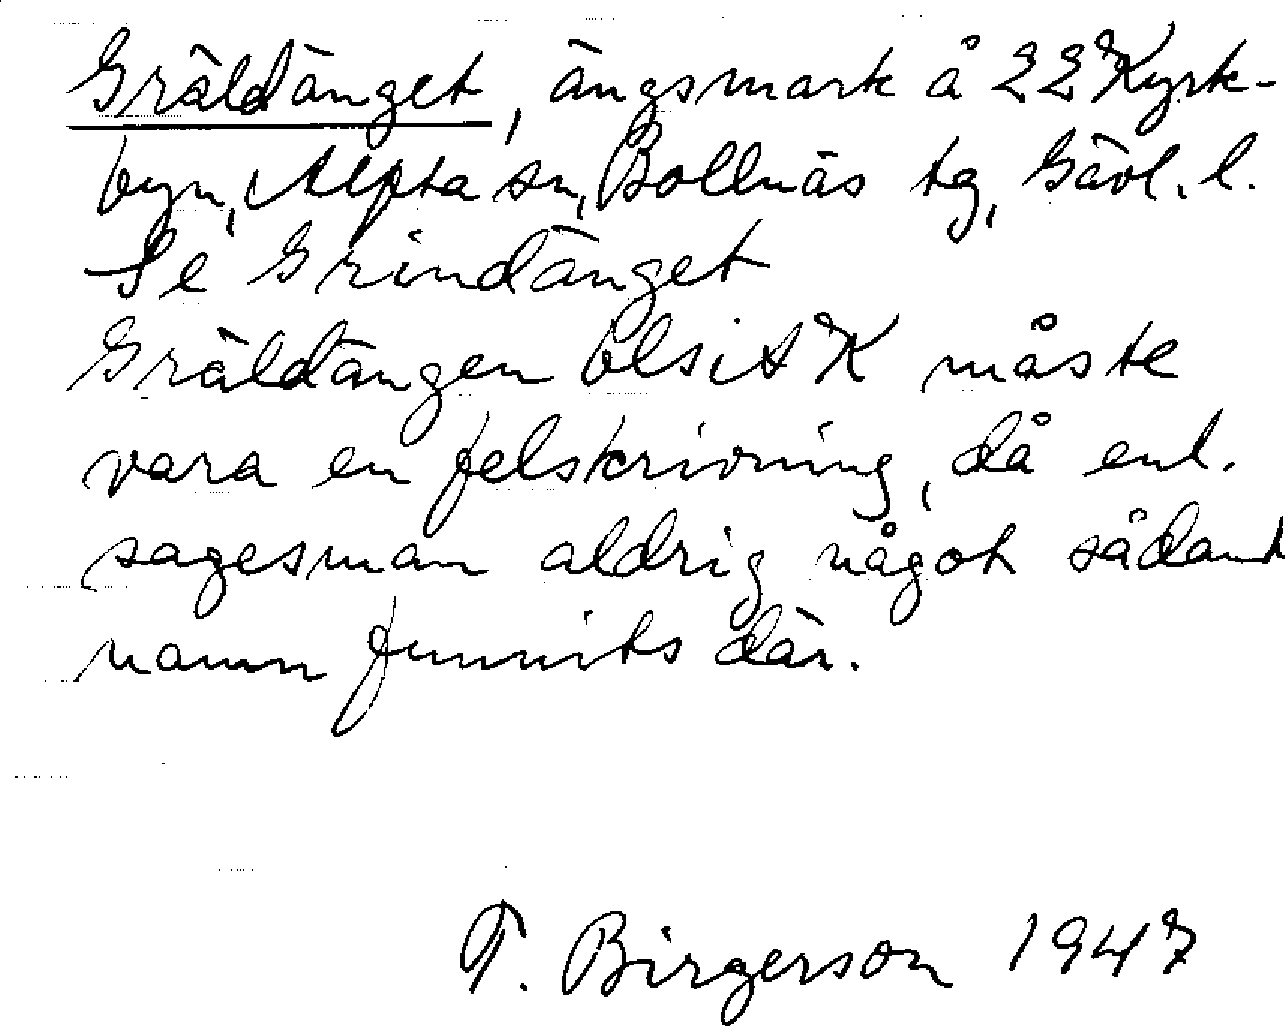 Gräldänget, ängsmark å 22 Kyrk-
byn, Alfta sn, Bollnäs tg, Gävl. l.
Se Grindänget
Gräldängen måste
vara en felskrivning, då enl.
sagesman aldrig något sådant
namn funnits där.
T. Birgerson 1947